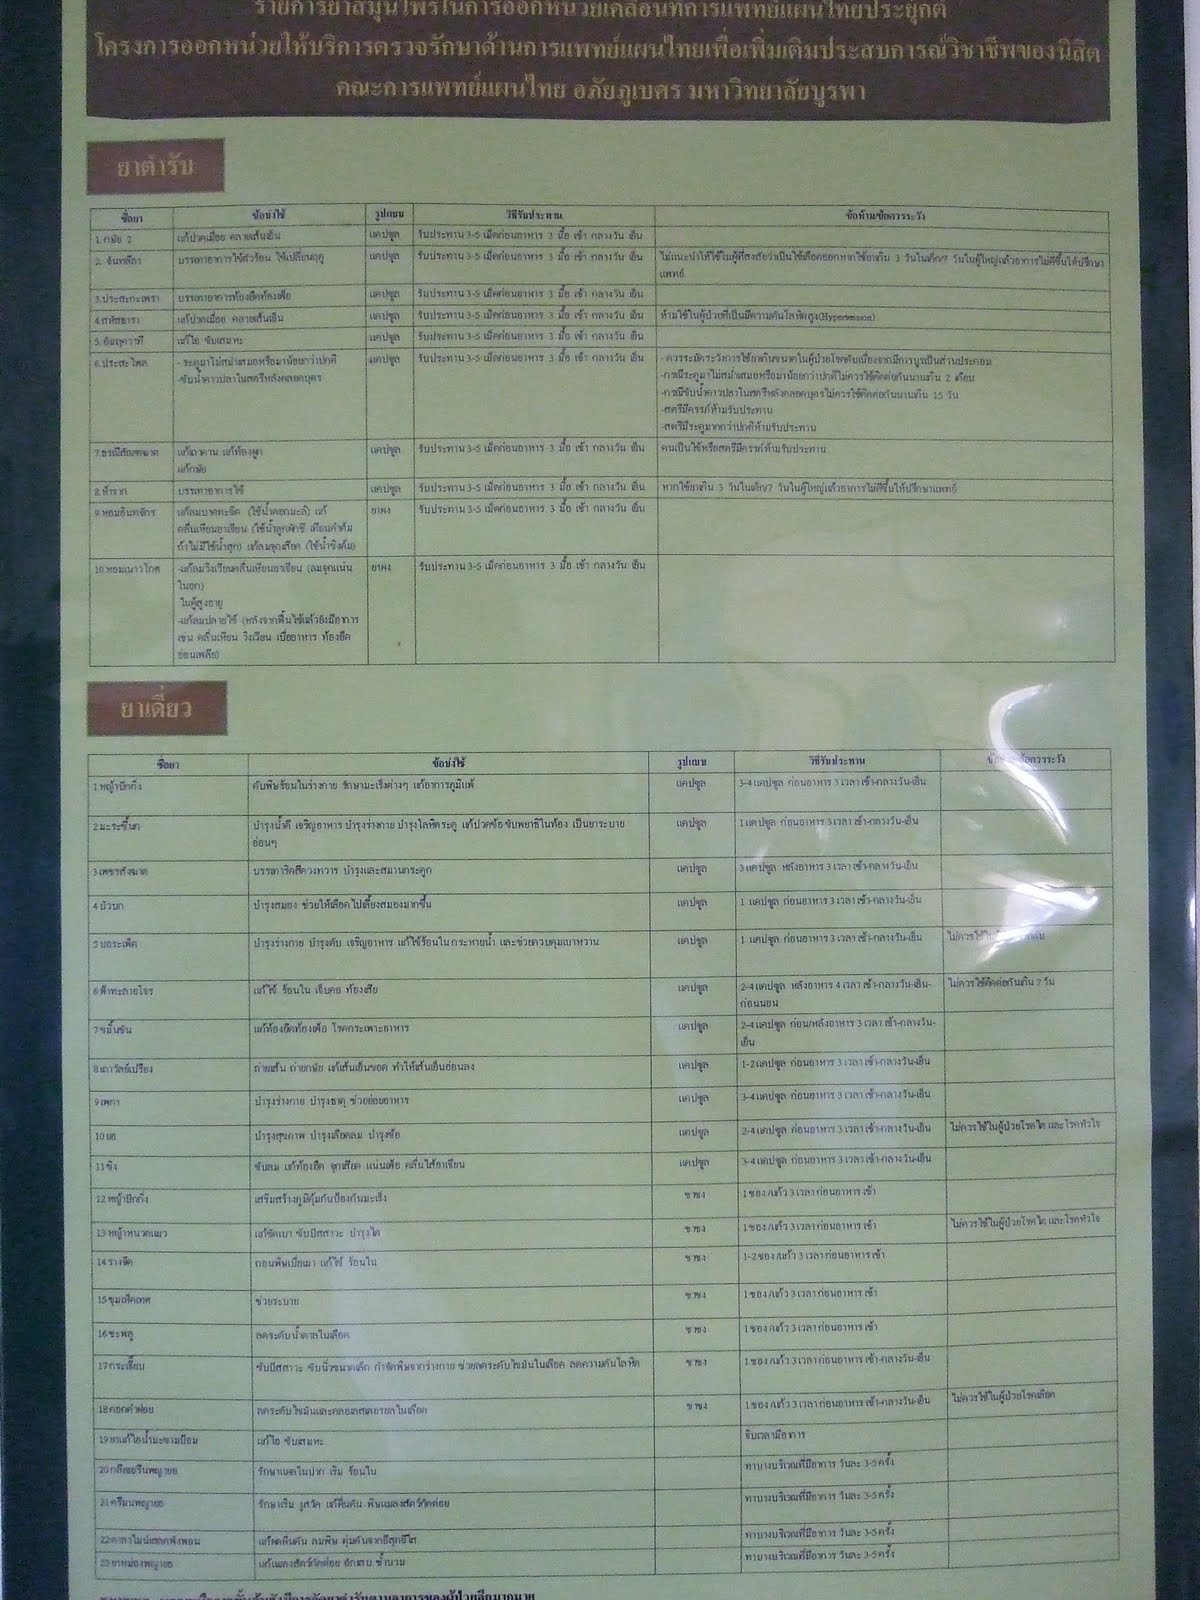 รายการยาสมุนไพรในการออกหน่วยเคลื่อนที่การแพทย์แผนไทยประยุกต์
โครงการออกหน่วยให้บริการตรวจรักษาด้านการแพทย์แผนไทยเพื่อเพิ่มเติมประสบการณ์วิชาชีพของนิสิต
คณะการแพทย์แผนไทย อภัยภูเบศร มหาวิทยาลัยบูรพา
ยาตำรับ
ชื่อยา ข้อบ่งใช้ รูปแบบ วิธีรับประทาน ข้อห้าม/ข้อควรระวัง
1.กษัย 2 แก้ปวดเมื่อย คลายเส้นเอ็น แคปซูล รับประทาน 3-5 เม็ดก่อนอาหาร 3 มื้อ เช้า กลางวัน เย็น
2. จันทลีลา บรรเทาอาการไข้ตัวร้อน ไข้เปลี่ยนฤดู แคปซูล รับประทาน 3-5 เม็ดก่อนอาหาร 3 มื้อ เช้า กลางวัน เย็น ไม่แนะนำให้ใช้ในผู้ที่สงสัยว่าเป็นไข้เลือดออกหากใช้ยาเกิน 3 วันในเด็ก/7 วันในผู้ใหญ่แล้วอาการไม่ดีขึ้นให้ปรึกษา
แพทย์
3.ประสะกะเพรา บรรเทาอาการท้องอืดท้องเฟ้อ แคปซูล รับประทาน 3-5 เม็ดก่อนอาหาร 3 มื้อ เช้า กลางวัน เย็น
4.สหัสธารา แก้ปวดเมื่อย คลายเส้นเอ็น แคปซูล รับประทาน 3-5 เม็ดก่อนอาหาร 3 มื้อ เช้า กลางวัน เย็น ห้ามใช้ในผู้ป่วยที่เป็นมีความดันโลหิตสูง(Hypertension)
5.อัมฤควาที แก้ไอ ขับเสมหะ แคปซูล รับประทาน 3-5 เม็ดก่อนอาหาร 3 มื้อ เช้า กลางวัน เย็น
6.ประสะไพล - ระดูมาไม่สม่ำเสมอหรือมาน้อยกว่าปกติ แคปซูล รับประทาน 3-5 เม็ดก่อนอาหาร 3 มื้อ เช้า กลางวัน เย็น - ควรระมัดระวังการใช้ยาเกินขนาดในผู้ป่วยโรคตับเนื่องจากมีการบูรเป็นส่วนประกอบ
-ขับน้ำคาวปลาในสตรีหลังคลอดบุตร -กรณีระดูมาไม่สม่ำเสมอหรือมาน้อยกว่าปกติไม่ควรใช้ติดต่อกันนานเกิน 2 เดือน
-กรณีขับน้ำคาวปลาในสตรีหลังคลอดบุตรไม่ควรใช้ติดต่อกันนานเกิน 15 วัน
-สตรีมีครรภ์ห้ามรับประทาน
-สตรีมีระดูมากกว่าปกติห้ามรับประทาน
7.ธรณีสัณฑฆาต แก้เถาดาน แก้ท้องผูก แคปซูล รับประทาน 3-5 เม็ดก่อนอาหาร 3 มื้อ เช้า กลางวัน เย็น คนเป็นไข้หรือสตรีมีครรภ์ห้ามรับประทาน
แก้กษัย
8.ห้าราก บรรเทาอาการไข้ แคปซูล รับประทาน 3-5 เม็ดก่อนอาหาร 3 มื้อ เช้า กลางวัน เย็น หากใช้ยาเกิน 3 วันในเด็ก/7 วันในผู้ใหญ่แล้วอาการไม่ดีขึ้นให้ปรึกษาแพทย์
9.หอมอินทจักร แก้ลมบาดทะจิต (ใช้น้ำดอกมะลิ) แก้ ยาผง รับประทาน 3-5 เม็ดก่อนอาหาร 3 มื้อ เช้า กลางวัน เย็น
คลื่นเหียนอาเจียน (ใช้น้ำลูกผักชี เทียนดำต้ม
ถ้าไม่มีใช้น้ำสุก) แก้ลมจุกเสียด (ใช้น้ำขิงต้ม)
10.หอมเนาวโกศ -แก้ลมวิงเวียนคลื่นเหียนอาเจียน (ลมจุกแน่น ยาผง รับประทาน 3-5 เม็ดก่อนอาหาร 3 มื้อ เช้า กลางวัน เย็น
ในอก)
ในผู้สูงอายุ
-แก้ลมปลายไข้ (หลังจากฟื้นไข้แล้วยังมีอาการ
เช่น คลื่นเหียน วิงเวียน เบื่ออาหาร ท้องอืด
อ่อนเพลีย)
ยาเดี่ยว
ชื่อยา ข้อบ่งใช้ รูปแบบ วิธีรับประทาน
1 หญ้าปักกิ่ง ดับพิษร้อนในร่างกาย รักษามะเร็งต่างๆ แก้อาการภูมิแพ้ แคปซูล 3-4 แคปซูล ก่อนอาหาร 3 เวลา เช้า-กลางวัน-เย็น
2 มะระขี้นก บำรุงน้ำดี เจริญอาหาร บำรุงร่างกาย บำรุงโลหิตระดู แก้ปวดข้อ ขับพยาธิในท้อง เป็นยาระบาย แคปซูล 1 แคปซูล ก่อนอาหาร 3 เวลา เช้า-กลางวัน-เย็น
อ่อนๆ
3 เพชรสังฆาต บรรเทาริดสีดวงทวาร บำรุงและสมานกระดูก แคปซูล 3 แคปซูล หลังอาหาร 3 เวลา เช้า-กลางวัน-เย็น
4 บัวบก บำรุงสมอง ช่วยให้เลือดไปเลี้ยงสมองมากขึ้น แคปซูล 1 แคปซูล ก่อนอาหาร 3 เวลา เช้า-กลางวัน-เย็น
5 บอระเพ็ด บำรุงร่างกาย บำรุงตับ เจริญอาหาร แก้ไข้ร้อนใน กระหายน้ำ และช่วยควบคุมเบาหวาน แคปซูล 1 แคปซูล ก่อนอาหาร 3 เวลา เช้า-กลางวัน-เย็น ไม่ควรใช้ใน
6 ฟ้าทะลายโจร แก้ไข้ ร้อนใน เจ็บคอ ท้องเสีย แคปซูล 2-4 แคปซูล หลังอาหาร 4 เวลา เช้า-กลางวัน-เย็น- ไม่ควรใช้ติดต่อกันเกิน 7 วัน
ก่อนนอน
7 ขมิ้นชัน แก้ท้องอืดท้องเฟ้อ โรคกระเพาะอาหาร แคปซูล 2-4 แคปซูล ก่อน/หลังอาหาร 3 เวลา เช้า-กลางวัน-
เย็น
8 เถาวัลย์เปรียง ถ่ายเส้น ถ่ายกษัย แก้เส้นเอ็นขอด ทำให้เส้นเอ็นอ่อนลง แคปซูล 1-2 แคปซูล ก่อนอาหาร 3 เวลา เช้า-กลางวัน-เย็น
9 เพกา บำรุงร่างกาย บำรุงธาตุ ช่วยย่อยอาหาร แคปซูล 3-4 แคปซูล ก่อนอาหาร 3 เวลา เช้า-กลางวัน-เย็น
10 ยอ บำรุงสุขภาพ บำรุงเลือดลม บำรุงข้อ แคปซูล 2-4 แคปซูล ก่อนอาหาร 3 เวลา เช้า-กลางวัน-เย็น ไม่ควรใช้ในผู้ป่วยโรคไต และโรคหัวใจ
11 ขิง ขับลม แก้ท้องอืด จุกเสียด แน่นเฟ้อ คลื่นไส้อาเจียน แคปซูล 3-4 แคปซูล ก่อนอาหาร 3 เวลา เช้า-กลางวัน-เย็น
12 หญ้าปักกิ่ง เสริมสร้างภูมิคุ้มกันป้องกันมะเร็ง ชาชง 1 ซอง /แก้ว 3 เวลา ก่อนอาหาร เช้า
13 หญ้าหนวดแมว แก้ขัดเบา ขับปัสสาวะ บำรุงไต ชาชง 1 ซอง /แก้ว 3 เวลา ก่อนอาหาร เช้า ไม่ควรใช้ในผู้ป่วยโรคไต และโรคหัวใจ
14 รางจืด ถอนพิษเบื่อเมา แก้ไข้ ร้อนใน ชาชง 1-2 ซอง /แก้ว 3 เวลา ก่อนอาหาร เช้า
15 ชุมเห็ดเทศ ช่วยระบาย ชาชง 1 ซอง /แก้ว 3 เวลา ก่อนอาหาร เช้า
16 ชะพลู ลดระดับน้ำตาลในเลือด ชาชง 1 ซอง /แก้ว 3 เวลา ก่อนอาหาร เช้า
17 กระเจี๊ยบ ขับปัสสาวะ ขับนิ่วขนาดเล็ก กำจัดพิษจากร่างกาย ช่วยลดระดับไขมันในเลือด ลดความดันโลหิต ชาชง 1 ซอง /แก้ว 3 เวลา ก่อนอาหาร เช้า-กลางวัน-เย็น
18 ดอกคำฝอย ลดระดับไขมันและคอเลสเตอรอลในเลือด ชาชง 1 ซอง /แก้ว 3 เวลา ก่อนอาหาร เช้า-กลางวัน-เย็น ไม่ควรใช้ในผู้ป่วยโรคเลือด
19 ยาแก้ไอน้ำมะขามป้อม แก้ไอ ขับเสมหะ จิบเวลามีอาการ
20 กลีเซอรีนพญายอ รักษาแผลในปาก เริม ร้อนใน ทาบางบริเวณที่มีอาการ วันละ 3-5 ครั้ง
21 ครีมพญายอ รักษาเริม งูสวัด แก้ผื่นคัน พิษแมลงสัตว์กัดต่อย ทาบางบริเวณที่มีอาการ วันละ 3-5 ครั้ง
22 คาลาไมน์เสลดพังพอน แก้ผดผื่นคัน ลมพิษ ตุ่มคันจากอีสุกอีใส ทาบางบริเวณที่มีอาการ วันละ 3-5 ครั้ง
23 ยาหม่องพญายอ แก้แมลงสัตว์กัดต่อย อักเสบ ช้ำบวม ทาบางบริเวณที่มีอาการ วันละ 3-5 ครั้ง